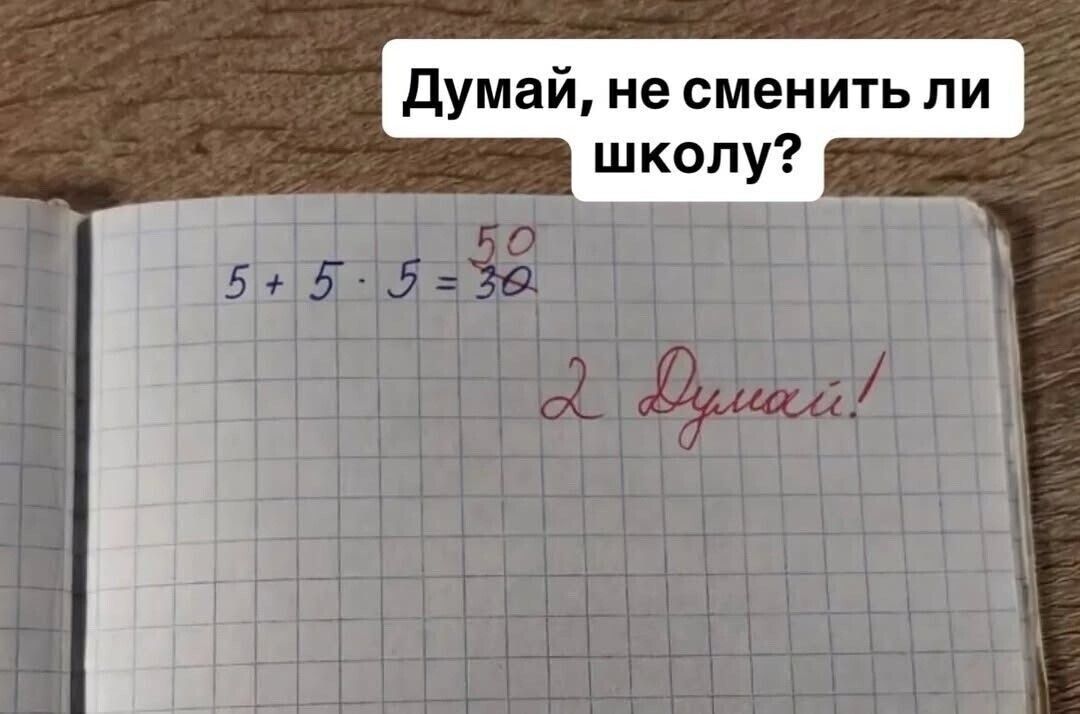 Думай, не сменить ли
школу?
50
5 + 5 · 5 = 30
2 Думай!